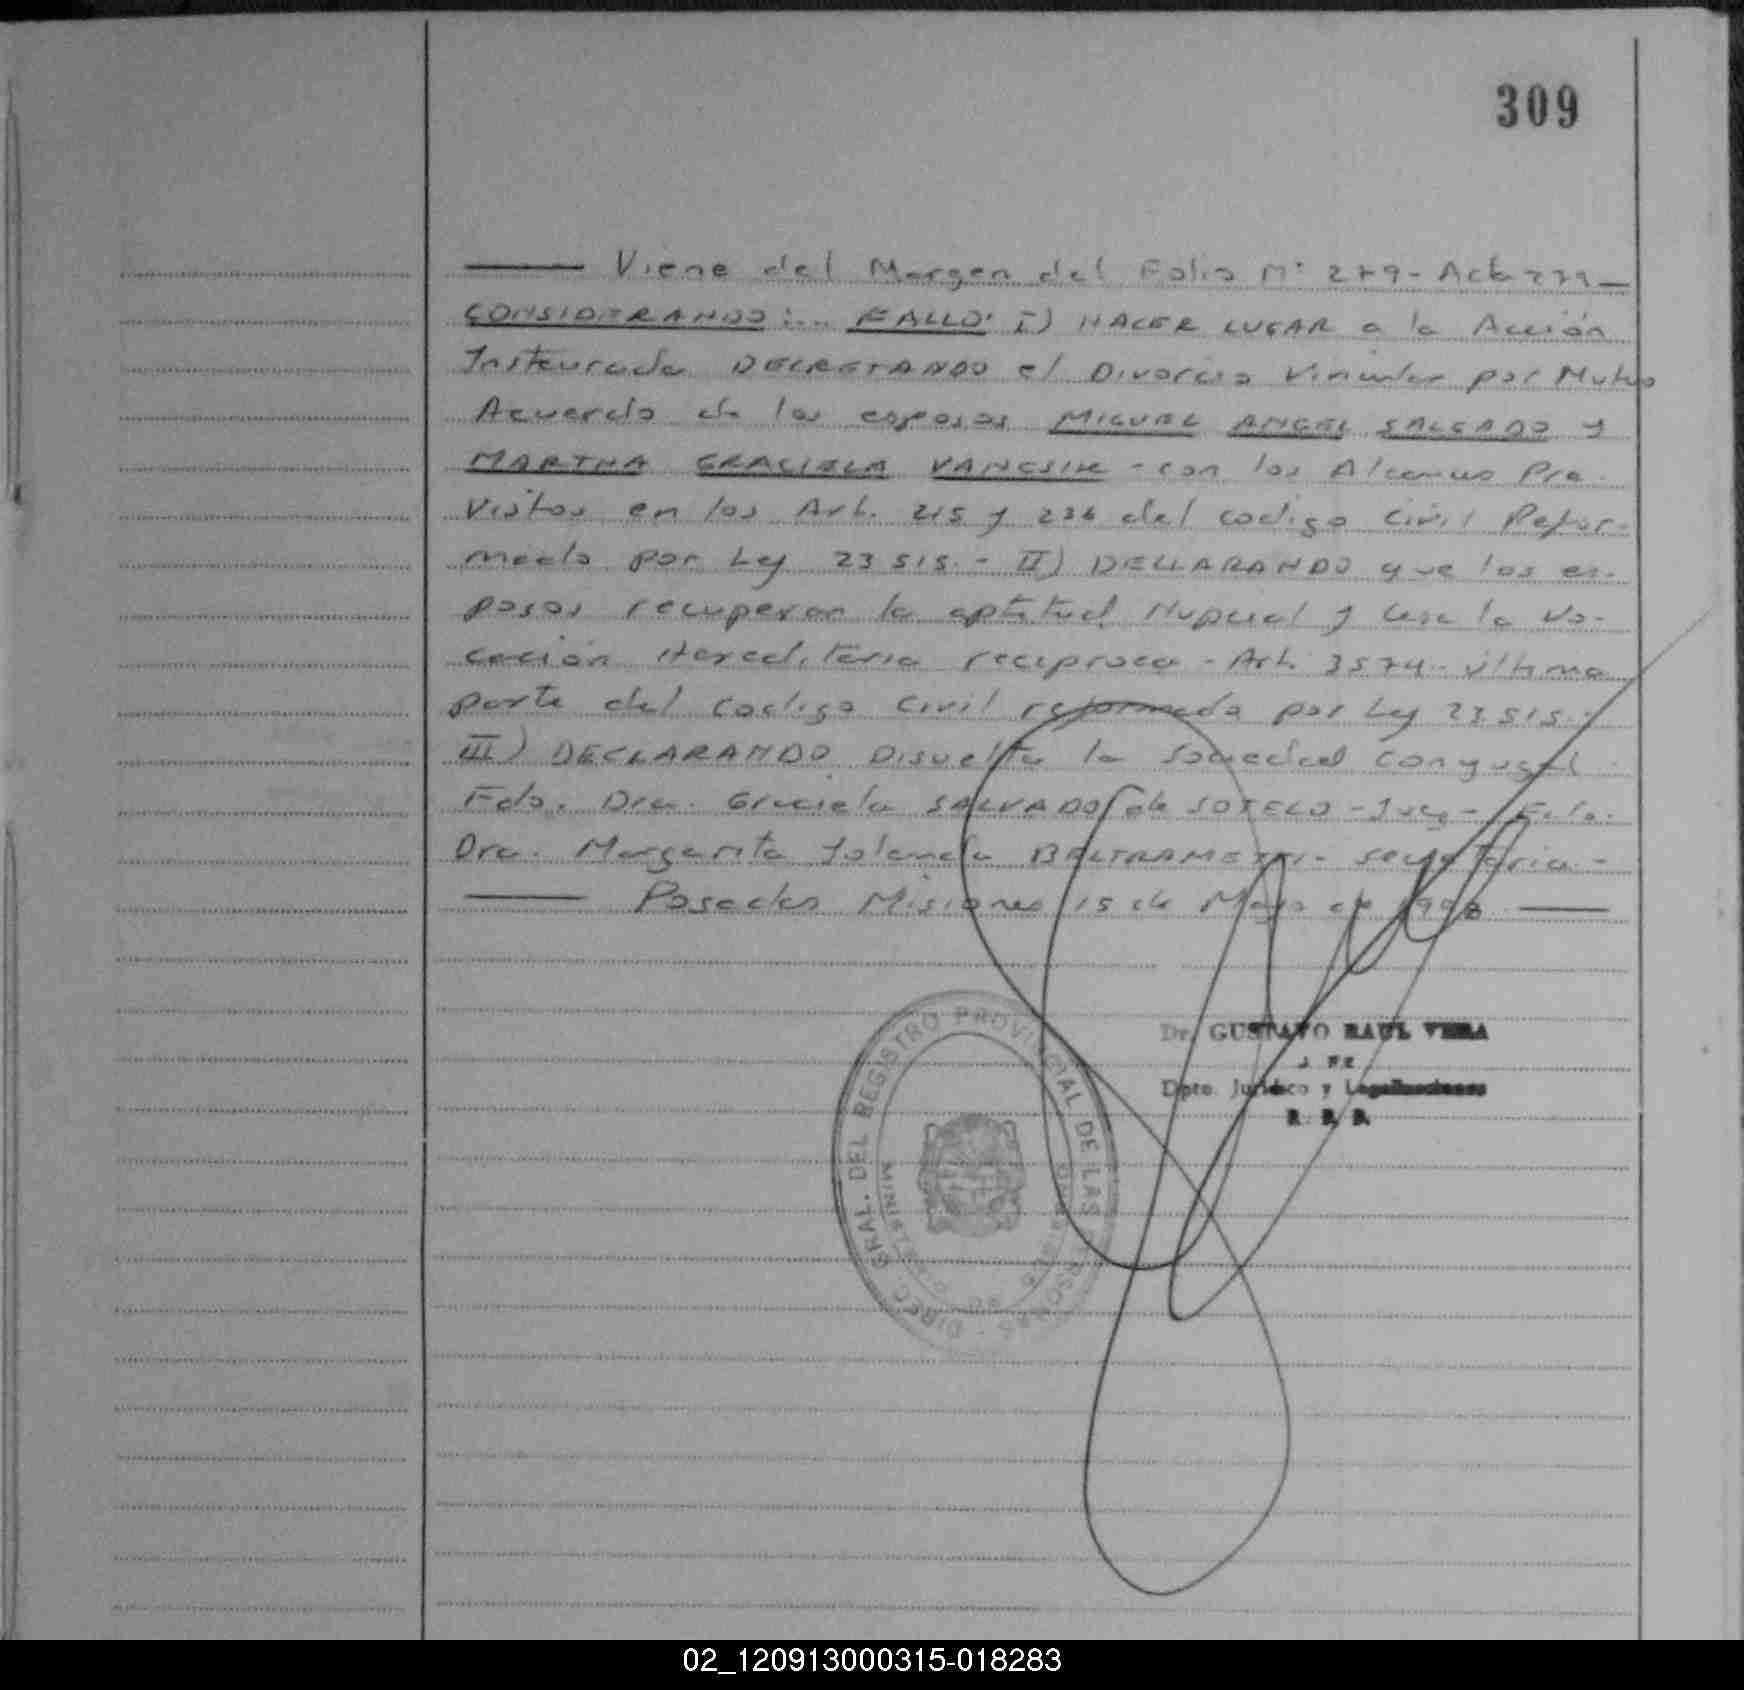 309
Viene del Margen del Folio Nº 279 - Acta 279
CONSIDERANDO:... FALLO: I) HACER LUGAR a la Acción
Instaurada DECRETANDO el Divorcio Vincular por Mutuo
Acuerdo de los esposos MIGUEL ANGEL SALGADO y
MARTHA GRACIELA - con los Alcances Pre-
vistos en los Art. 215 y 236 del codigo Civil Refor-
mado por Ley 23515.- II) DECLARANDO que los es-
posos recuperan la aptitud Nupcial y cesa la Vo-
cación Hereditaria reciproca - Art. 3574 - última
parte del codigo Civil reformado por Ley 23515.-
III) DECLARANDO Disuelta la Sociedad Conyugal
Fdo. Dra. Graciela SALVADO de SOTELO - Juez - Fdo.
Dra. Margarita Yolanda BELTRAMETTI - secretaria -
Posadas Misiones 15 de Mayo de 1998
Dr. GUSTAVO RAUL VERA
JEFE
Dpto. Jurídico y Legalizaciones
DIREC. GRAL. DEL REGISTRO PROVINCIAL DE LAS PERSONAS
02_120913000315-018283